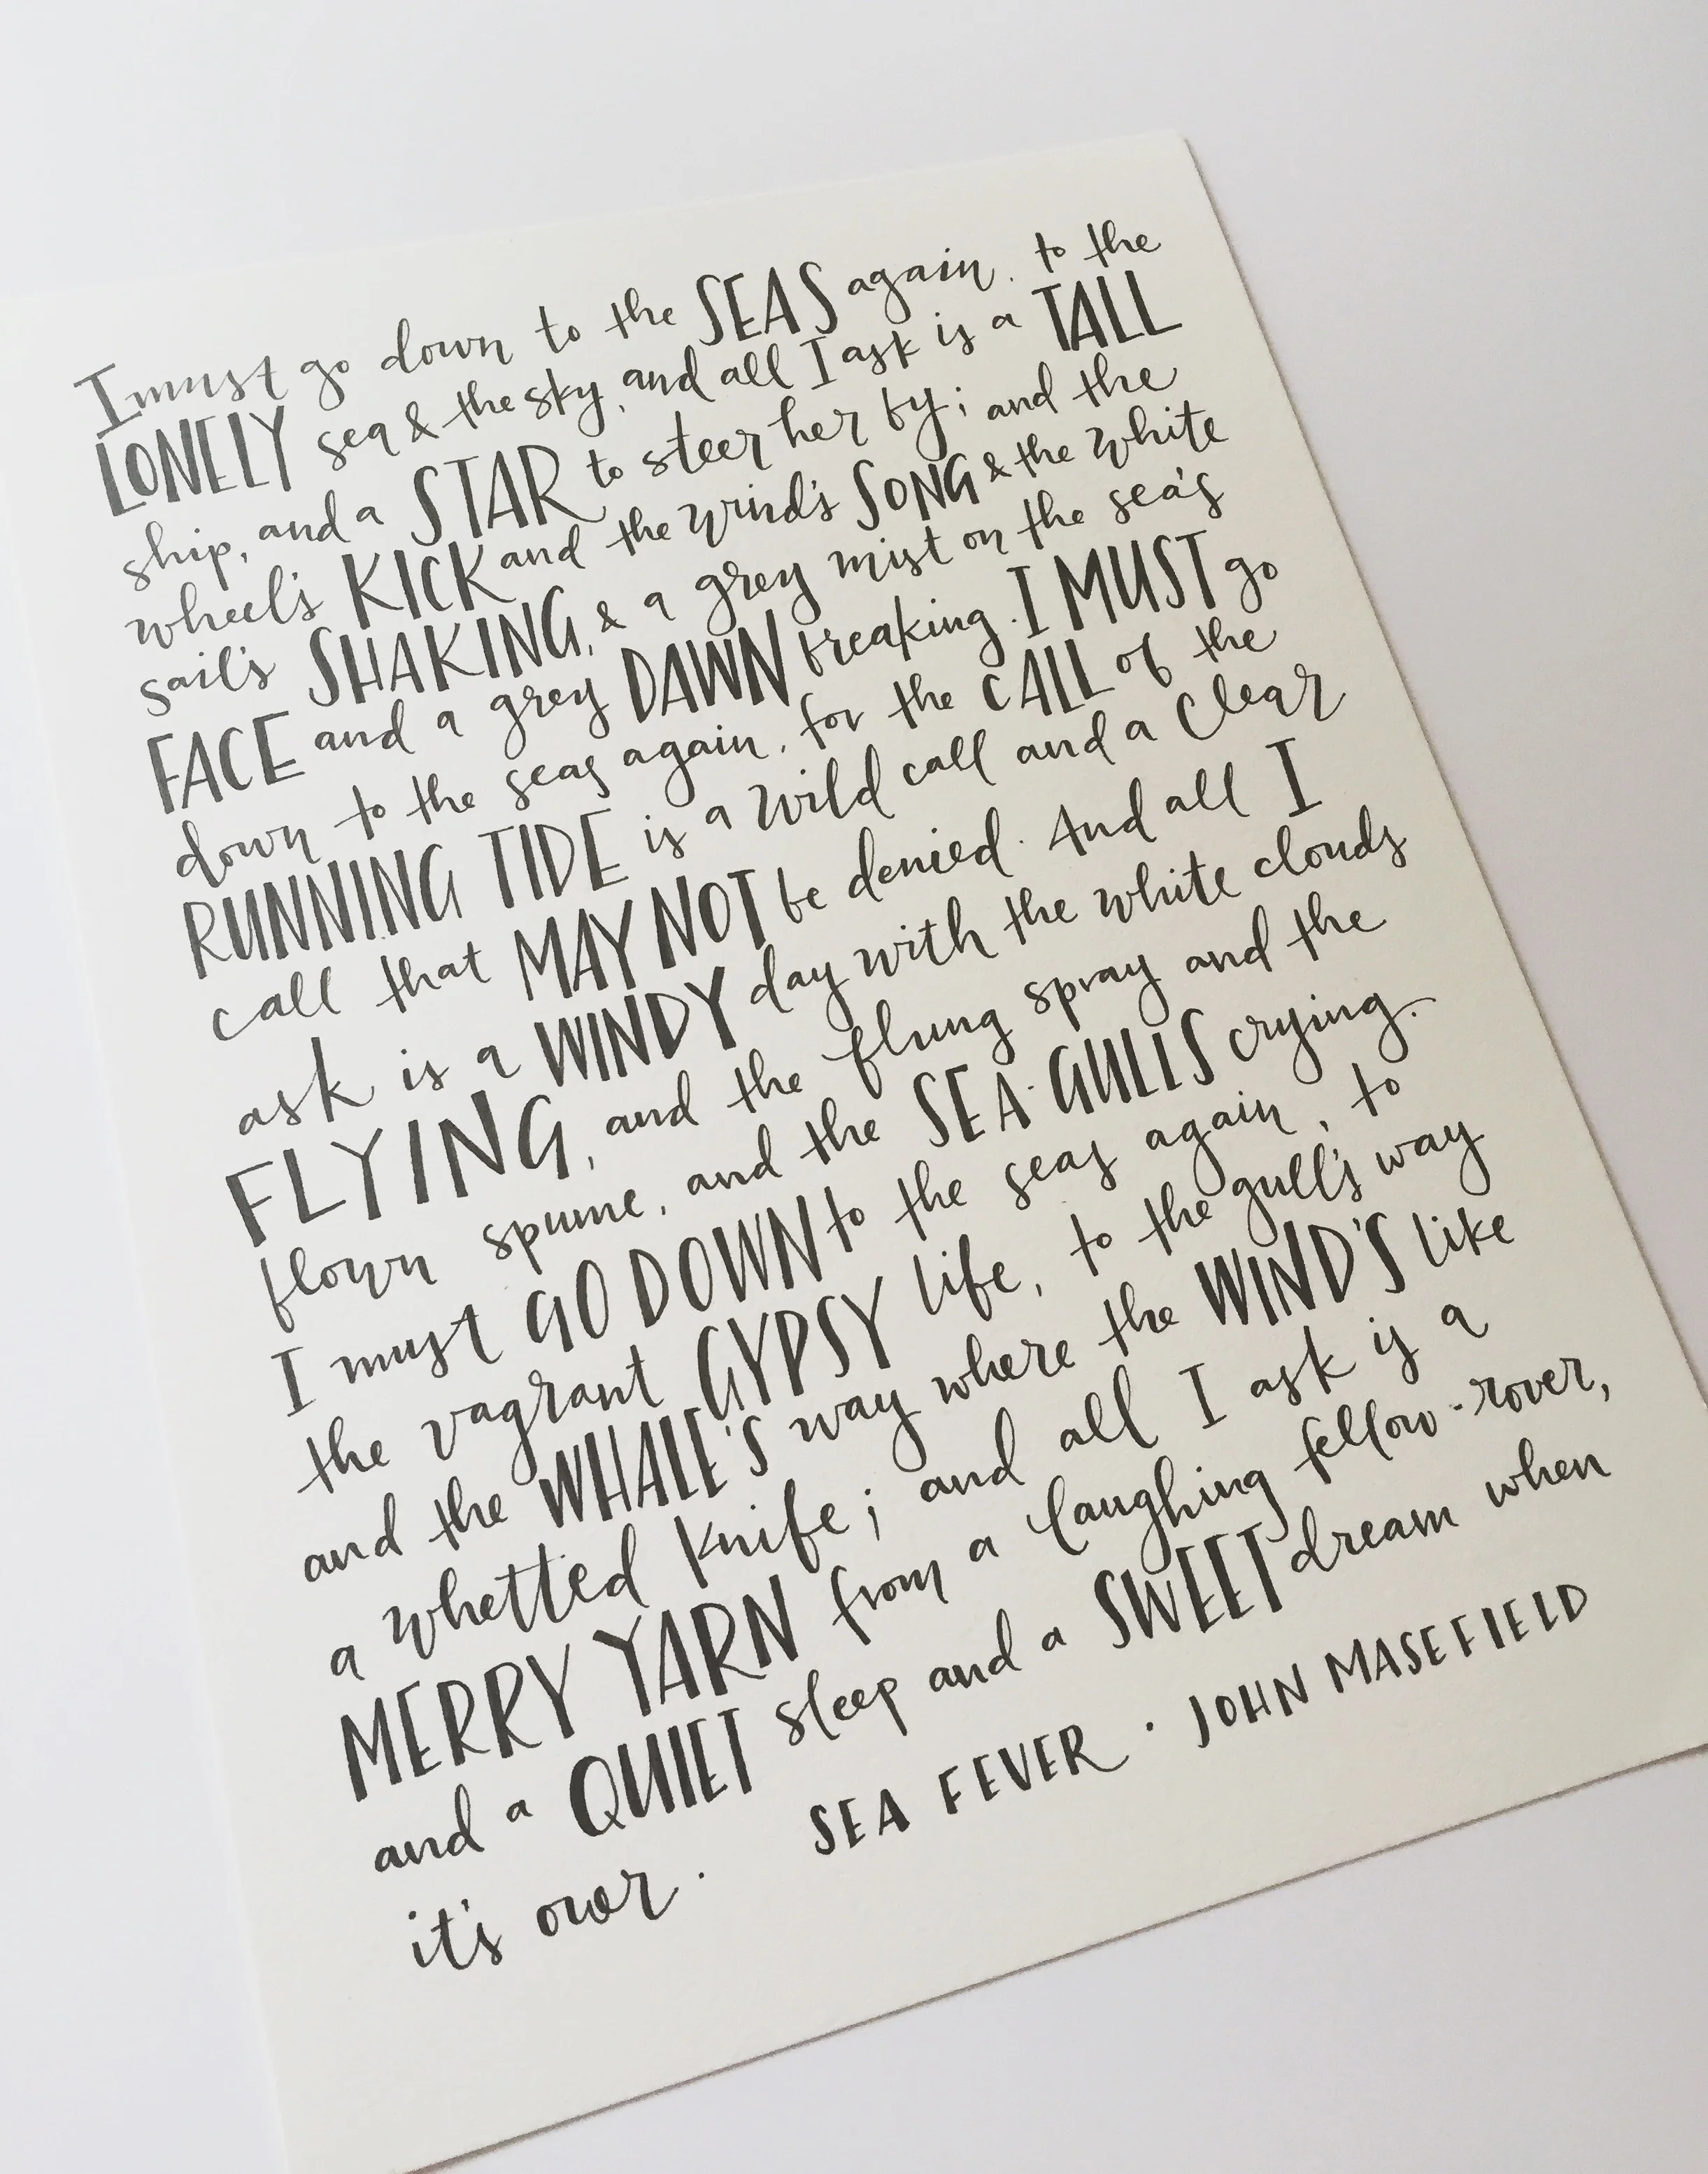 I must go down to the SEAS again, to the
LONELY sea & the sky, and all I ask is a TALL
ship, and a STAR to steer her by; and the
wheel's KICK and the wind's SONG & the white
sail's SHAKING, & a grey mist on the sea's
FACE and a grey DAWN breaking. I MUST go
down to the seas again, for the CALL of the
RUNNING TIDE is a wild call and a clear
call that MAY NOT be denied. And all I
ask is a WINDY day with the white clouds
FLYING, and the flung spray and the
flown spume, and the SEA-GULLS crying.
I must GO DOWN to the seas again, to
the vagrant GYPSY life, to the gull's way
and the WHALE'S way where the WIND'S like
a whetted knife; and all I ask is a
MERRY YARN from a laughing fellow-rover,
and a QUIET sleep and a SWEET dream when
it's over.
SEA FEVER · JOHN MASEFIELD